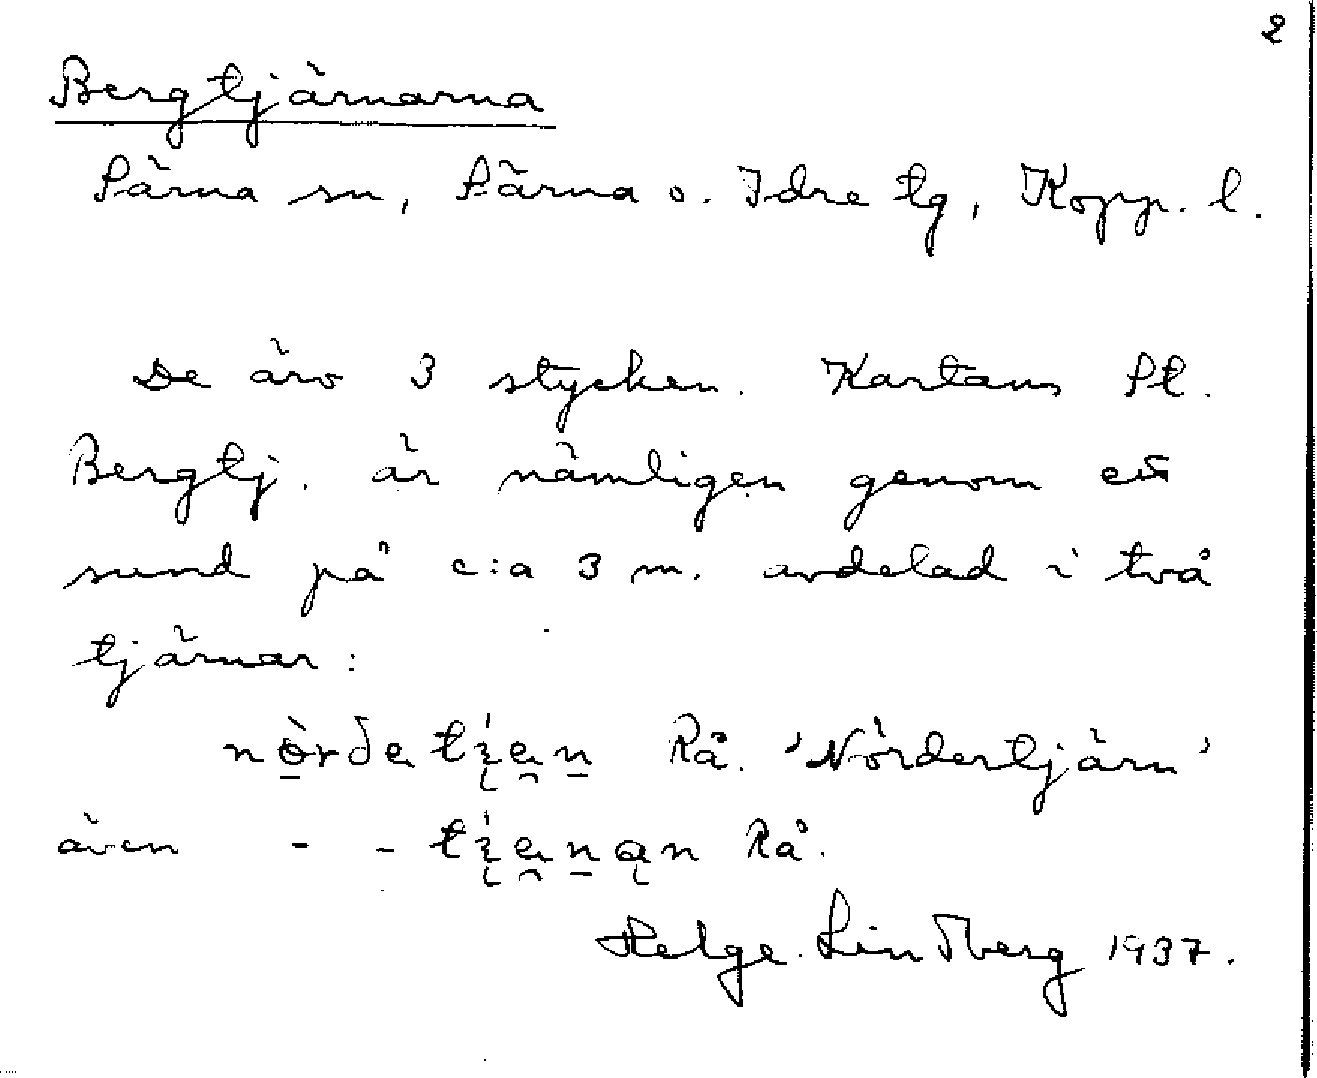 2
Bergtjärnarna
Särna sn, Särna o. Idre tg, Kopp. l.
De äro 3 stycken. Kartans St.
Bergtj. är nämligen genom ett
sund på c:a 3 m. avdelad i två
tjärnar:
Rå. 'Nördertjärn'
även - - Rå.
Helge Lindberg 1937.